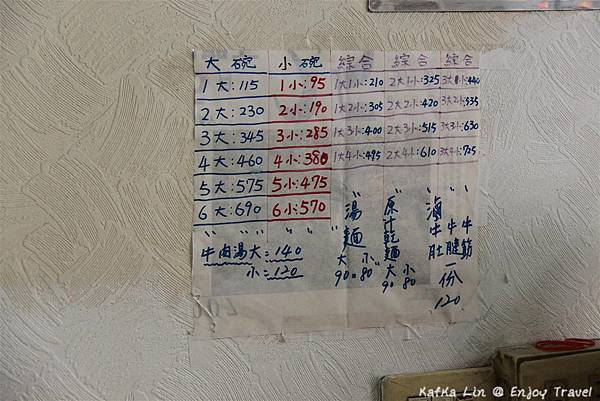 大碗 小碗 綜合 綜合 綜合
1大:115 1小:95 1大1小:210 2大1小:325 3大1小:440
2大:230 2小:190 1大2小:305 2大2小:420 3大2小:535
3大:345 3小:285 1大3小:400 2大3小:515 3大3小:630
4大:460 4小:380 1大4小:495 2大4小:610 3大4小:725
5大:575 5小:475
6大:690 6小:570
牛肉湯大=140
小=120
湯麵
大 小
90 80
原汁乾麵
大 小
90 80
滷牛肚
牛腱
牛筋
一份120
Kafka Lin @ Enjoy Travel